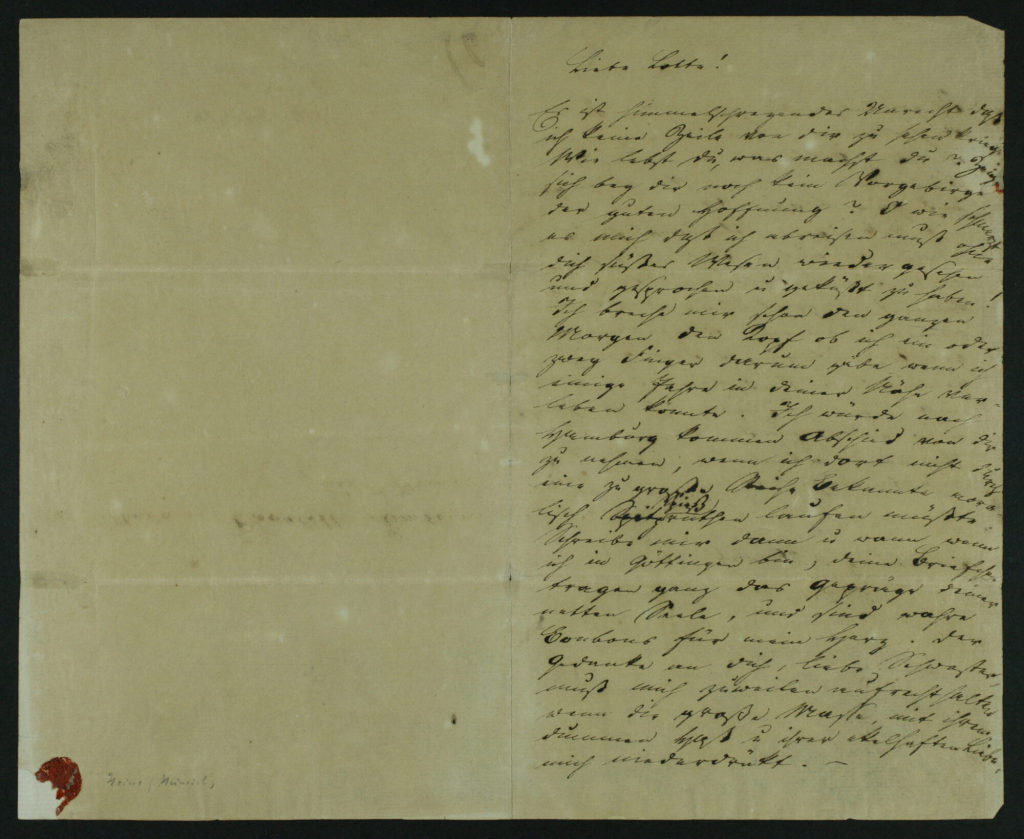 Liebe Lotte!
Es ist himmelschreyendes Unrecht daß
ich keine Zeile von dir zu sehen kriege
Wie lebst du, was machst du? Zeigt
sich bey dir noch kein Vorgebirge
der guten Hoffnung? O wie schmerzt
es mich daß ich abreisen muß ohne
dich süßes Wesen wiedergesehen
und gesprochen u geküßt zu haben!
Ich breche mir schon den ganzen
Morgen den Kopf ob ich ein oder
zwey Finger darum gäbe wenn ich
einige Jahre in deiner Nähe ver-
leben könnte. Ich würde nach
Hamburg kommen Abschied von dir
zu nehmen, wenn ich dort nicht durch
eine zu große Reihe Bekannte mora-
lisch Spießruthen laufen müßte.
Schreibe mir dann u wann wenn
ich in Göttingen bin, deine Briefchen
tragen ganz das Gepräge deiner
netten Seele, und sind wahre
Bonbons für mein Herz. Der
Gedanke an dich, liebe Schwester,
muß mich zuweilen aufrecht halten
wenn die große Masse, mit ihrem
dummen Haß u ihrer ekelhaften Liebe,
mich niederdrükt. —
Heine (Heinrich)